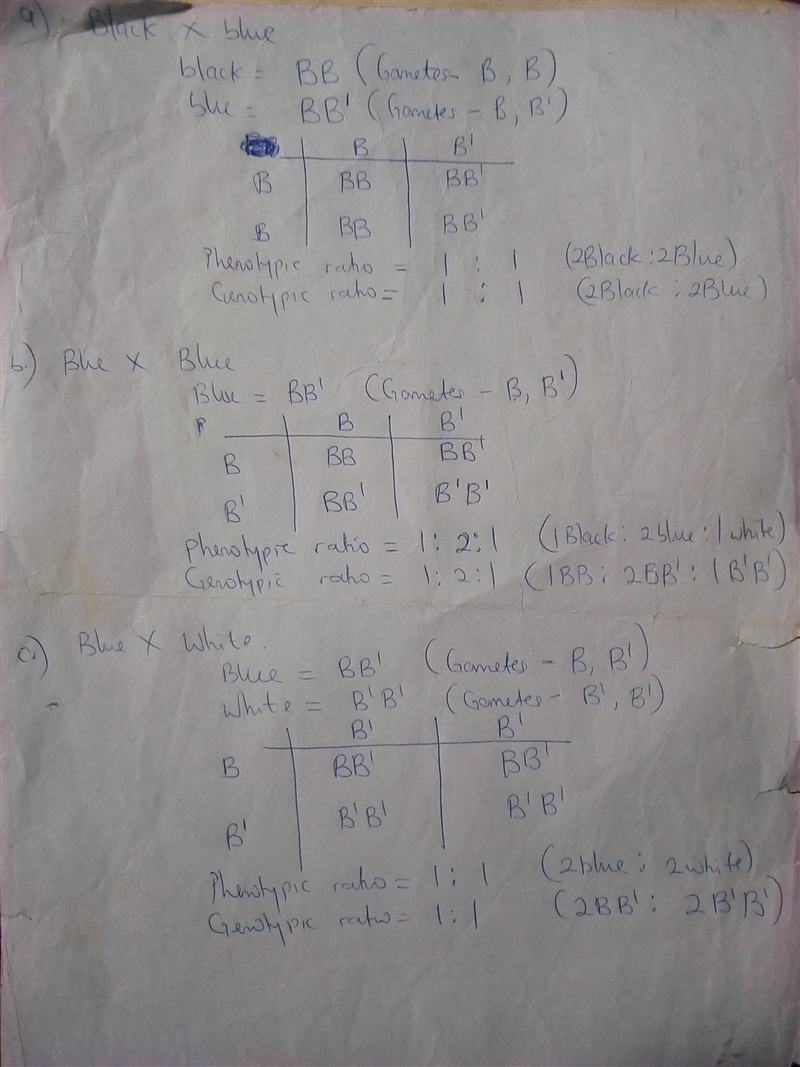 a) Black × blue
black = BB (Gametes - B, B)
blue = BB' (Gametes - B, B')
B B'
B BB BB'
B BB BB'
Phenotypic ratio = 1 : 1 (2Black : 2Blue)
Genotypic ratio = 1 : 1 (2Black : 2Blue)
b.) Blue × Blue
Blue = BB' (Gametes - B, B')
B B'
B BB BB'
B' BB' B'B'
Phenotypic ratio = 1 : 2 : 1 (1Black : 2blue : 1white)
Genotypic ratio = 1 : 2 : 1 (1BB : 2BB' : 1B'B')
c.) Blue × White.
Blue = BB' (Gametes - B, B')
White = B'B' (Gametes - B', B')
B' B'
B BB' BB'
B' B'B' B'B'
Phenotypic ratio = 1 : 1 (2blue : 2white)
Genotypic ratio = 1 : 1 (2BB' : 2B'B')